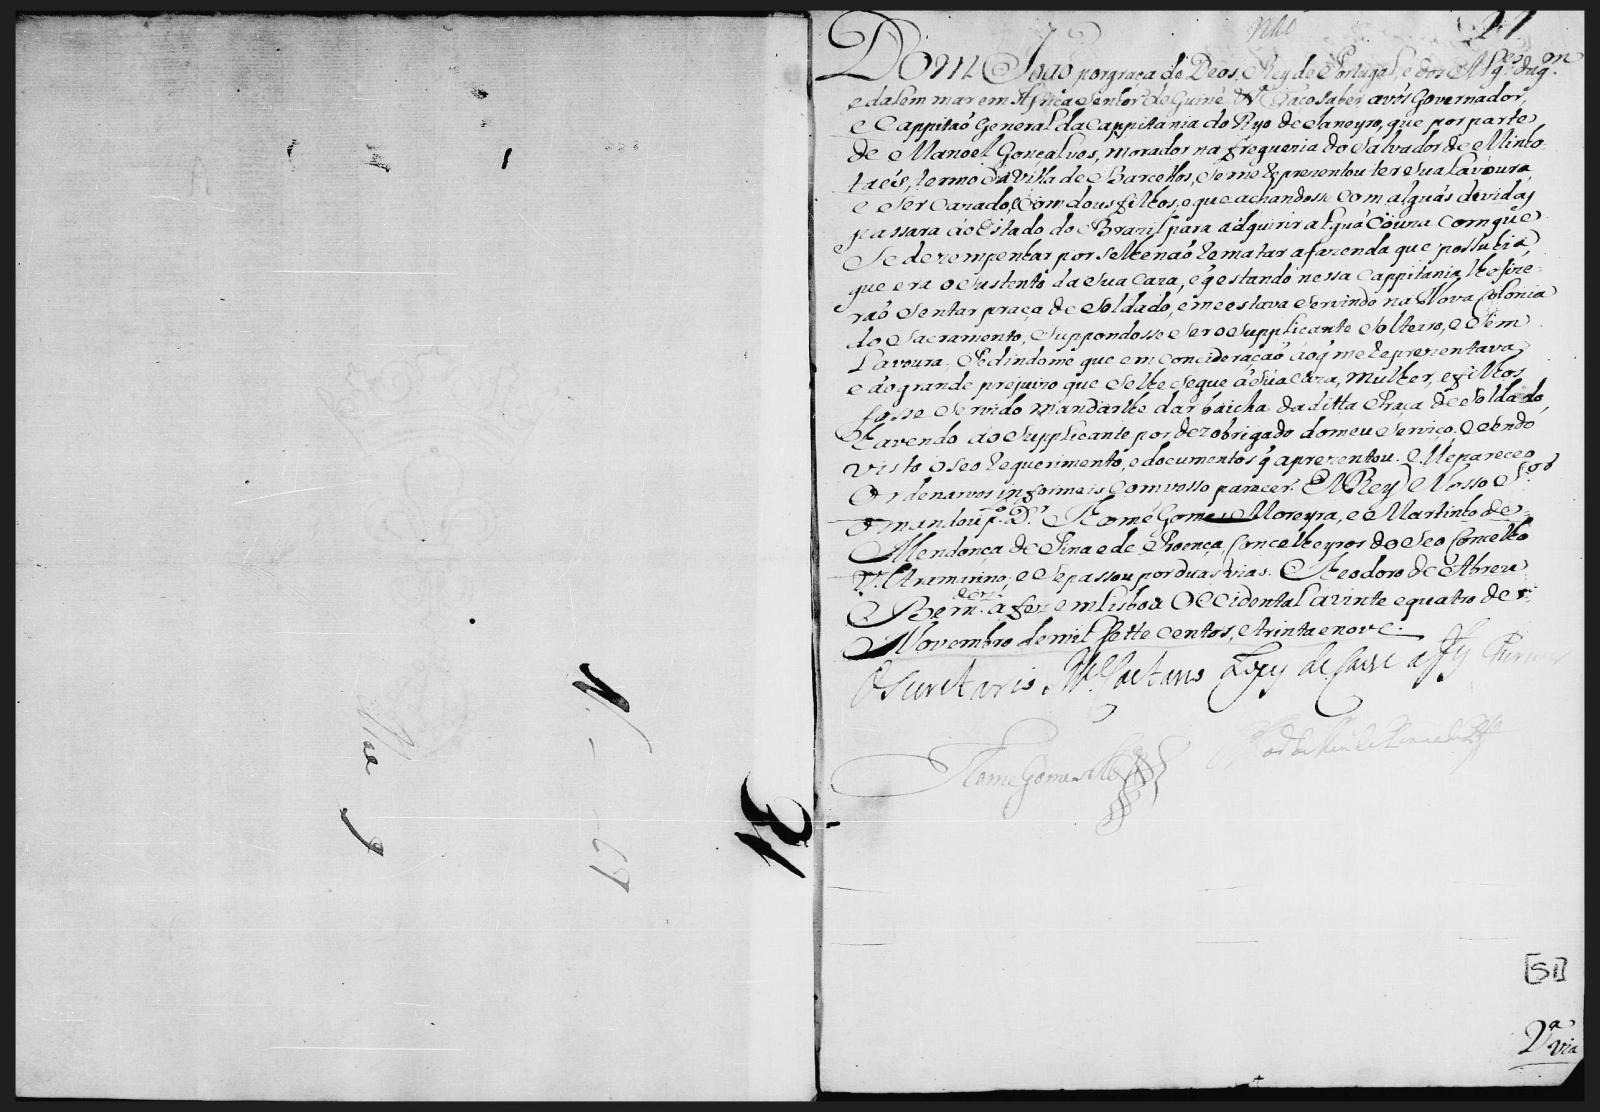 27
Dom João por graça de Deos, Rey de Portugal, e dos Alg.es daq.m
e dalem mar em Africa Senhor de Guiné &.a Faço saber a vós Governador,
e Cappitaõ General da Cappitania do Ryo de Janeyro, que por parte
de Manoel Gonçalves, morador na freguezia do Salvador de Minho
taés, termo da Villa de Barcellos, se me reprezentou ter sua Lavoura,
e ser cazado, com dous filhos, e que achandose com alguãs dividas
passara ao Estado do Brazil para adquirir alguã couza com que
se dezempenhar por se lhe naõ rematar a fazenda que possuhia,
que era o sustento da sua caza, e q̃ estando nessa Cappitania, lhe fize-
raõ sentar praça de Soldado, em estava servindo na Nova Colonia
do Sacramento, suppondosse ser o supplicante solteiro, e sem
Lavoura; Pedindome que em concideraçaõ ao q̃ me reprezentava,
e ao grande prejuizo que se lhe segue á sua caza, mulher, e filhos,
fosse servido mandarlhe dar baicha da ditta Praça de Soldado,
havendo ao supplicante por dezobrigado do meu serviço. E sendo
visto o seo requerimento, e documentos q̃ aprezentou. Me pareceo
Ordenarvos informeis com vosso parecer. El Rey Nosso S.or
o mandou p.lo D.r Thomé Gomes Moreyra, e Martinho de
Mendonça de Pina e de Proença Conselheyros do seo Conselho
Ultramarino, e se passou por duas vias. Theodoro de Abreu
Bern.des a fez em Lisboa Occidental a vinte e quatro de
Novembro de mil sette centos, e trinta e nove.
O Secretario M.el Caetano Lopes de Lavre a fez
Thome Gomes Mor.a
[51]
2.a via